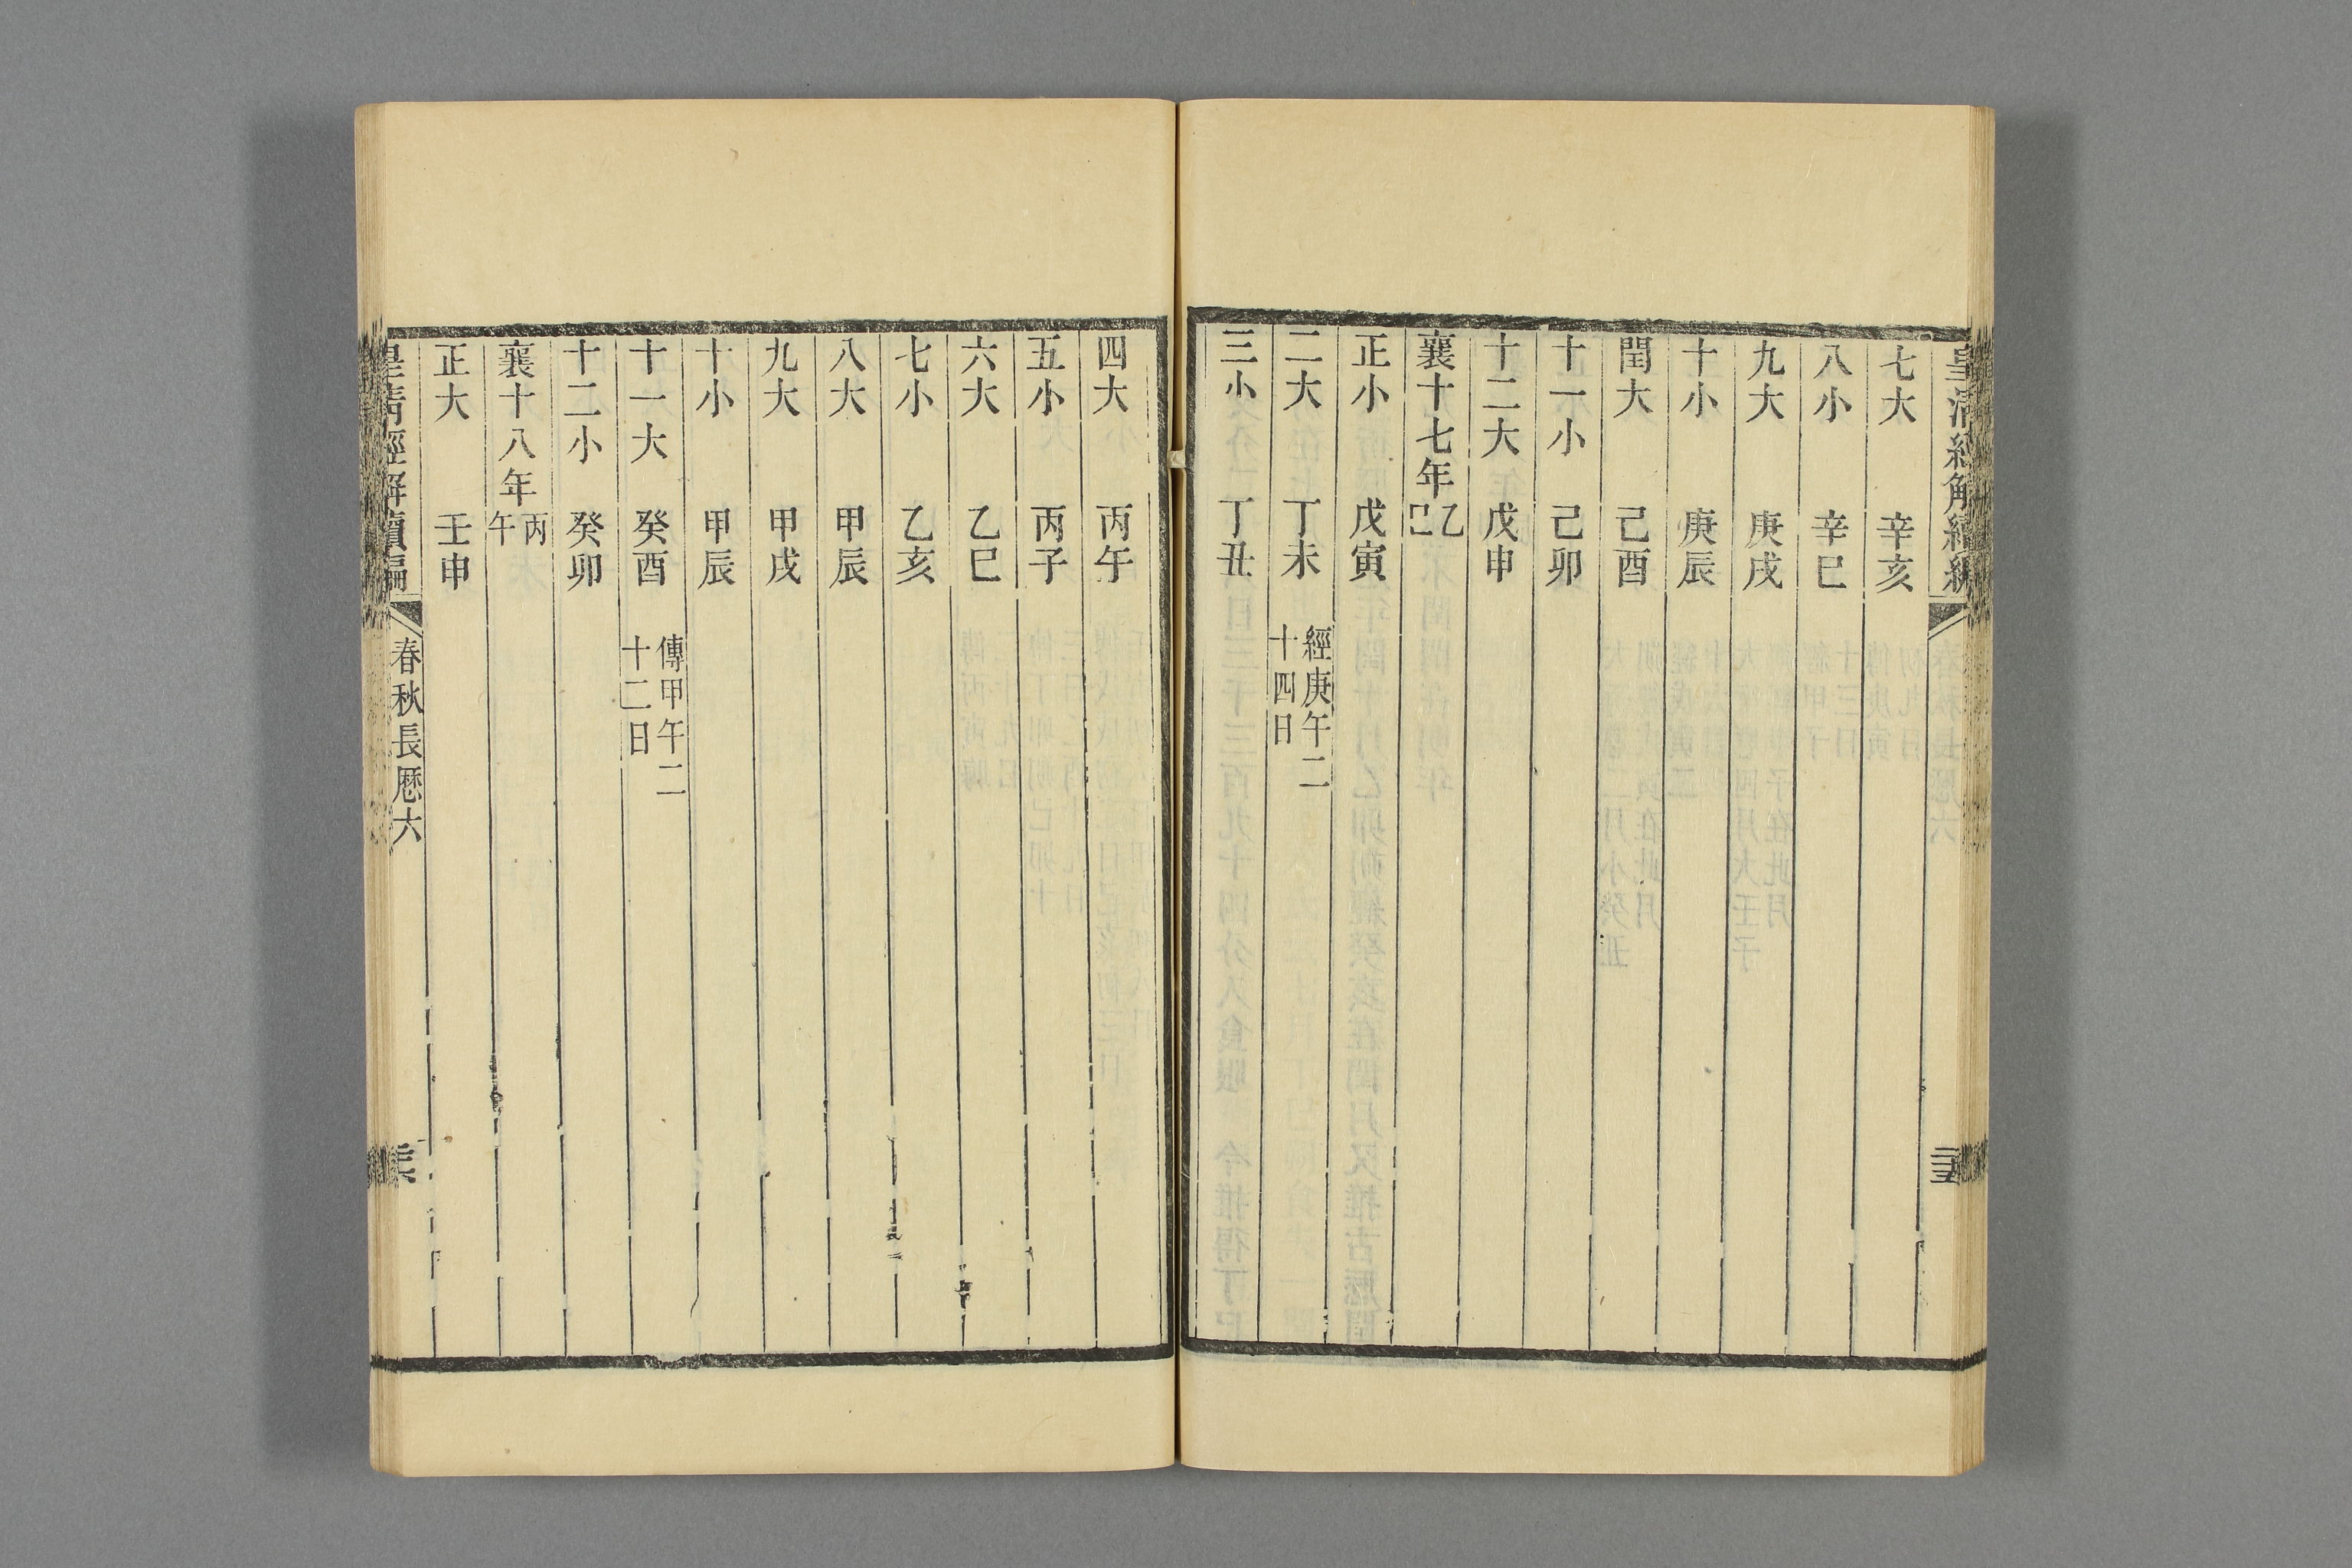 七大 辛亥
八小 辛巳
九大 庚戌
十小 庚辰
閏大 己酉
十一小 己卯
十二大 戊申
襄十七年 乙巳
正小 戊寅
二大 丁未 經庚午二十四日
三小 丁丑
四大 丙午
五小 丙子
六大 乙巳
七小 乙亥
八大 甲辰
九大 甲戌
十小 甲辰
十一大 癸酉 傳甲午二十二日
十二小 癸卯
襄十八年 丙午
正大 壬申
皇清經解續編 春秋長厯六